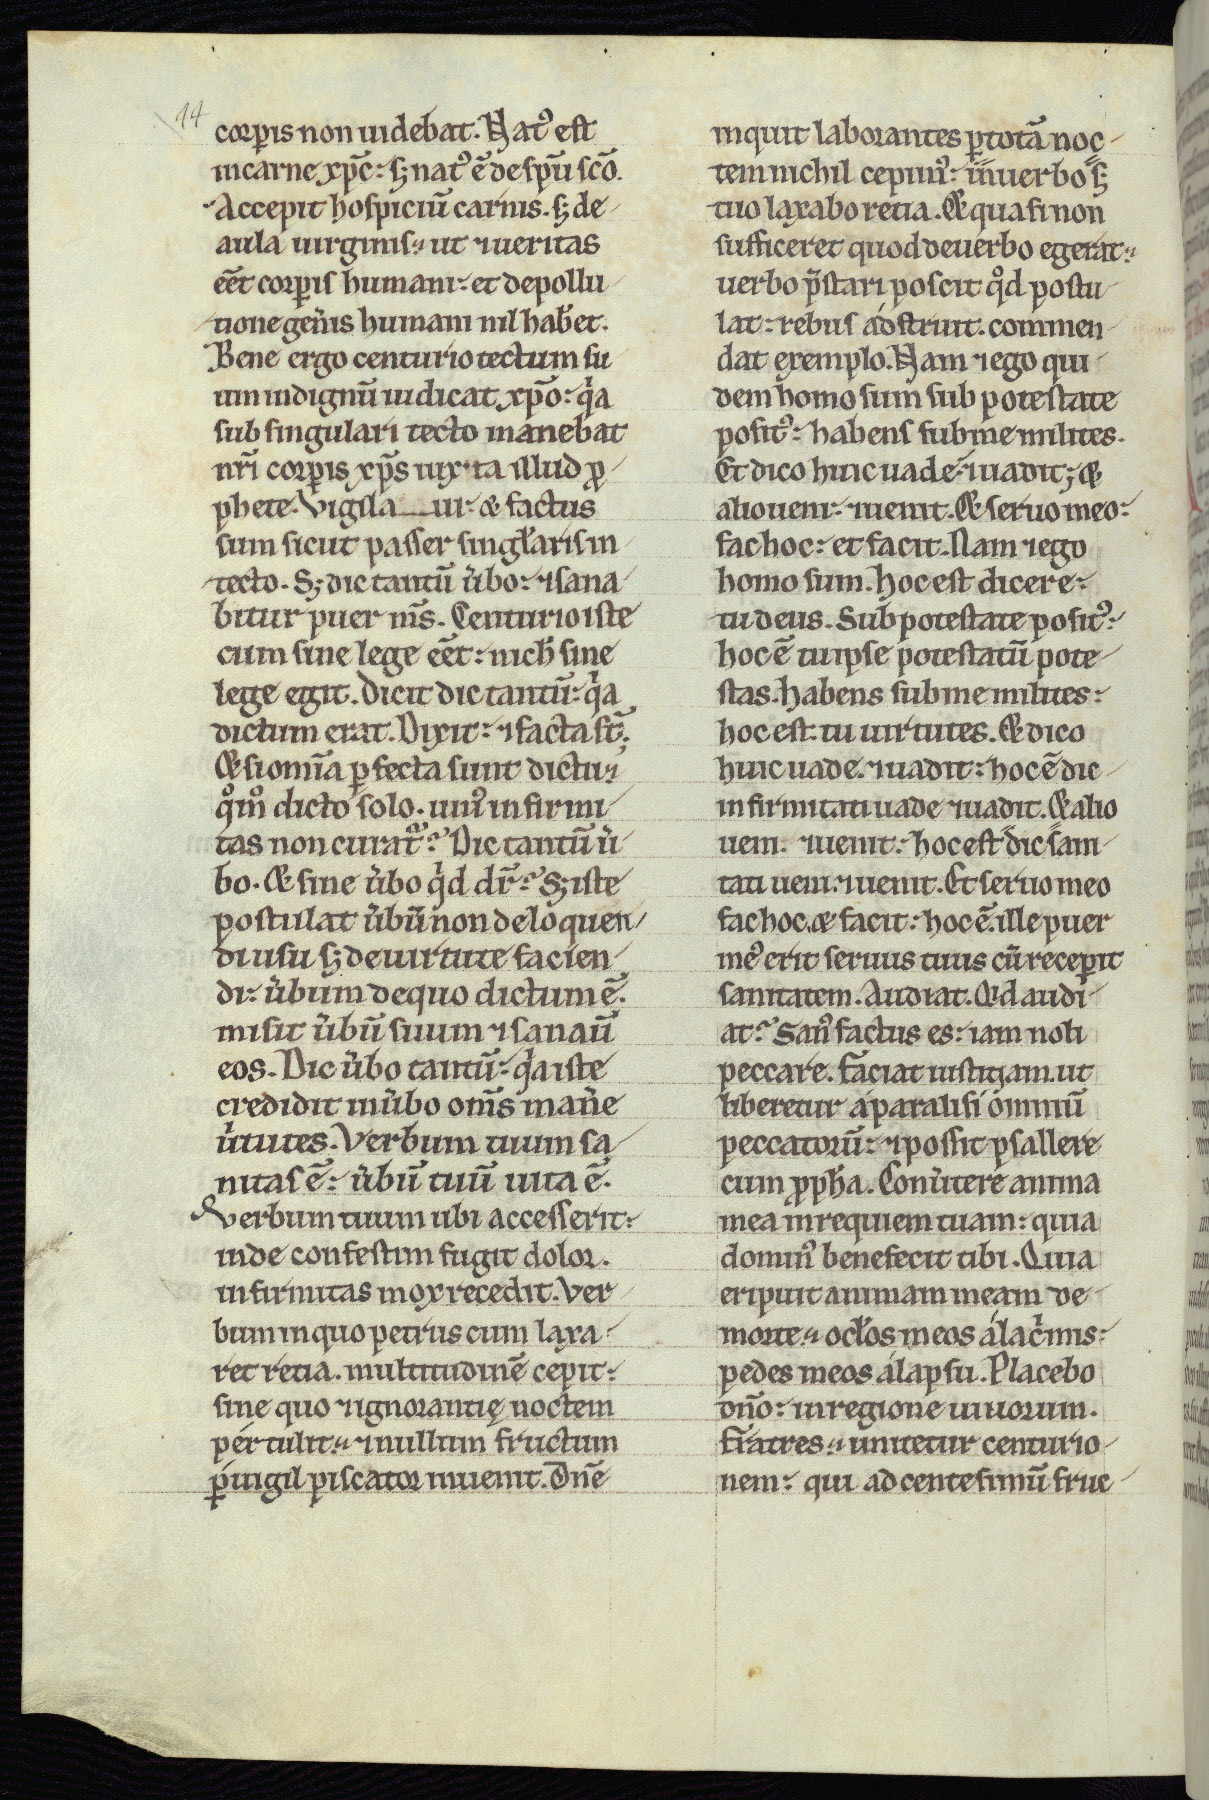 14
corꝑis non uidebat. Natꝰ est
in carne xp̄c: sꝫ natꝰ ē de sp̄u sc̄o.
Accepit hospiciū carnis. sꝫ de
aula uirginis. ut ⁊ ueritas
eēt corꝑis humani: et de pollu
tione gen̄is humani nil hab̄et.
Bene ergo centurio tectum su
um indignū iudicat xp̄o: qͥa
sub singulari tecto manebat
nr̄i corꝑis xp̄s iuxta illud ꝓ
phete. Vigilaui: & factus
sum sicut passer singłaris in
tecto. Sꝫ dic tantū ùbo: ⁊ sana
bitur puer m̄s. Centurio iste
cum sine lege eēt: nich̄ sine
lege egit. Dicit dic tantū: qͥa
dictum erat. Dixit: ⁊ facta st̄;
& si omīa ꝑfecta sunt dictu.
qͦm̊ dicto solo. uniꝰ infirmi
tas non curat̄? Dic tantū ù
bo. & sine ùbo qͥd dr̄? Sꝫ iste
postulat ùbū non de loquen
di usu sꝫ de uirtute facien
di: ùbum de quo dictum ē.
misit ùbū suum ⁊ sanauͫ
eos. Dic ùbo tantū: qͥa iste
credidit in ùbo om̄s man̄e
ùtutes. Verbum tuum sa
nitas ē: ùbū tuū uita ē.
Verbum tuum ubi accesserit:
inde confestim fugit dolor.
infirmitas mox recedit. Ver
bum in quo petrus cum laxa
ret retia. multitudinē cepit:
sine quo ⁊ ignorantię noctem
pertulit. ⁊ nullum fructum
ꝑuigil piscator inuenit. Dn̄e
inquit laborantes ꝑ totā noc
tem nichil cepimꝰ: in uerbo sꝫ
tuo laxabo retia. & quasi non
sufficeret quod de uerbo egerat.
uerbo p̄stari poscit qͦd postu
lat: rebus adstruit. commen
dat exemplo. Nam ⁊ ego qui
dem homo sum sub potestate
positꝰ: habens sub me milites.
Et dico huic uade: ⁊ uadit; &
alio ueni: ⁊ uenit. & seruo meo:
fac hoc: et facit. Nam ⁊ ego
homo sum. hoc est dicere:
tu deus. Sub potestate positꝰ:
hoc ē tu ipse potestatū pote
stas. habens sub me milites:
hoc est: tu uirtutes. & dico
huic uade. ⁊ uadit: hoc ē dic
infirmitati uade ⁊ uadit. & alio
ueni. ⁊ uenit: hoc est dic sani
tati ueni. ⁊ uenit. Et seruo meo
fac hoc. & facit: hoc ē. ille puer
meꝰ erit seruus tuus cū recepit
sanitatem. Audiat. Qͥd audi
at? Sanꝰ factus es: iam noli
peccare. Faciat iustitiam. ut
liberetur a paralisi omniū
peccatorū: ⁊ possit psallere
cum ꝓph̄a. Conùtere anima
mea in requiem tuam: quia
dominꝰ benefecit tibi. Quia
eripuit animam meam de
morte. ocłos meos a lac̄mis:
pedes meos a lapsu. Placebo
dn̄o: in regione uiuorum.
Fratres. imitetur centurio
nem: qui ad centesimū fruc